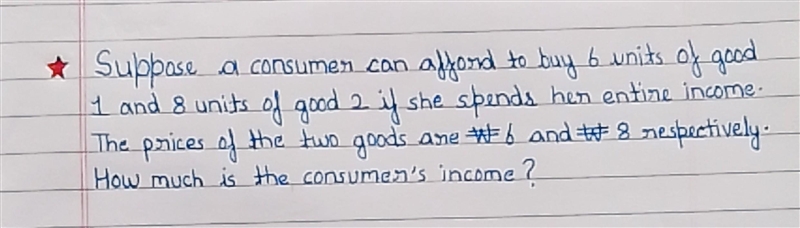 ★ Suppose a consumer can afford to buy 6 units of good
1 and 8 units of good 2 if she spends her entire income.
The prices of the two goods are ₹ 6 and ₹ 8 respectively.
How much is the consumer's income?